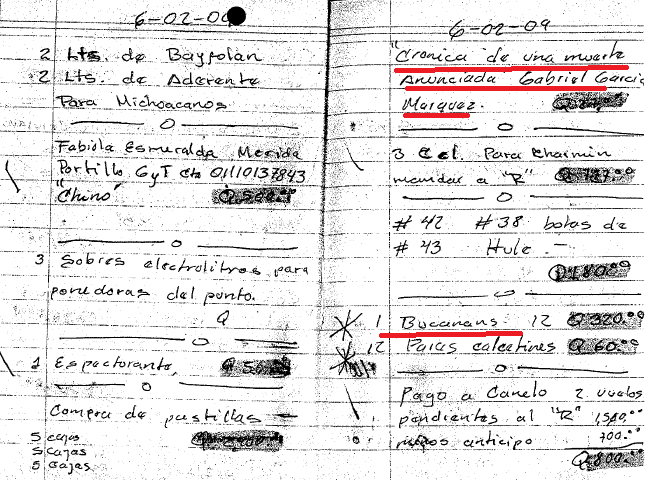 6-02-09
2 Lts. de Bayfolan
2 Lts. de Aderente
Para Michoacanos
Fabiola Esmeralda Merida
Portillo GyT Cta 01110137843
"Chino" Q.500.00
3 Sobres electrolitros para
ponedoras del punto.
Q
1 Espectorante,
Compra de pastillas
5 cajas
5 Cajas
5 Cajas
6-02-09
"Cronica de una muerte
Anunciada Gabriel Garcia
Marquez.
3 Cel. Para Chaimin
mandar a "R" Q 727.00
# 42 # 38 botas de
# 43 Hule.-
Q 180.00
1 Bucanans 12 Q 320.00
12 Pares calcetines Q 60.00
Pago a Canelo 2 vuelos
pendientes al "R" 1,500.00
menos anticipo 700.00
Q 800.00